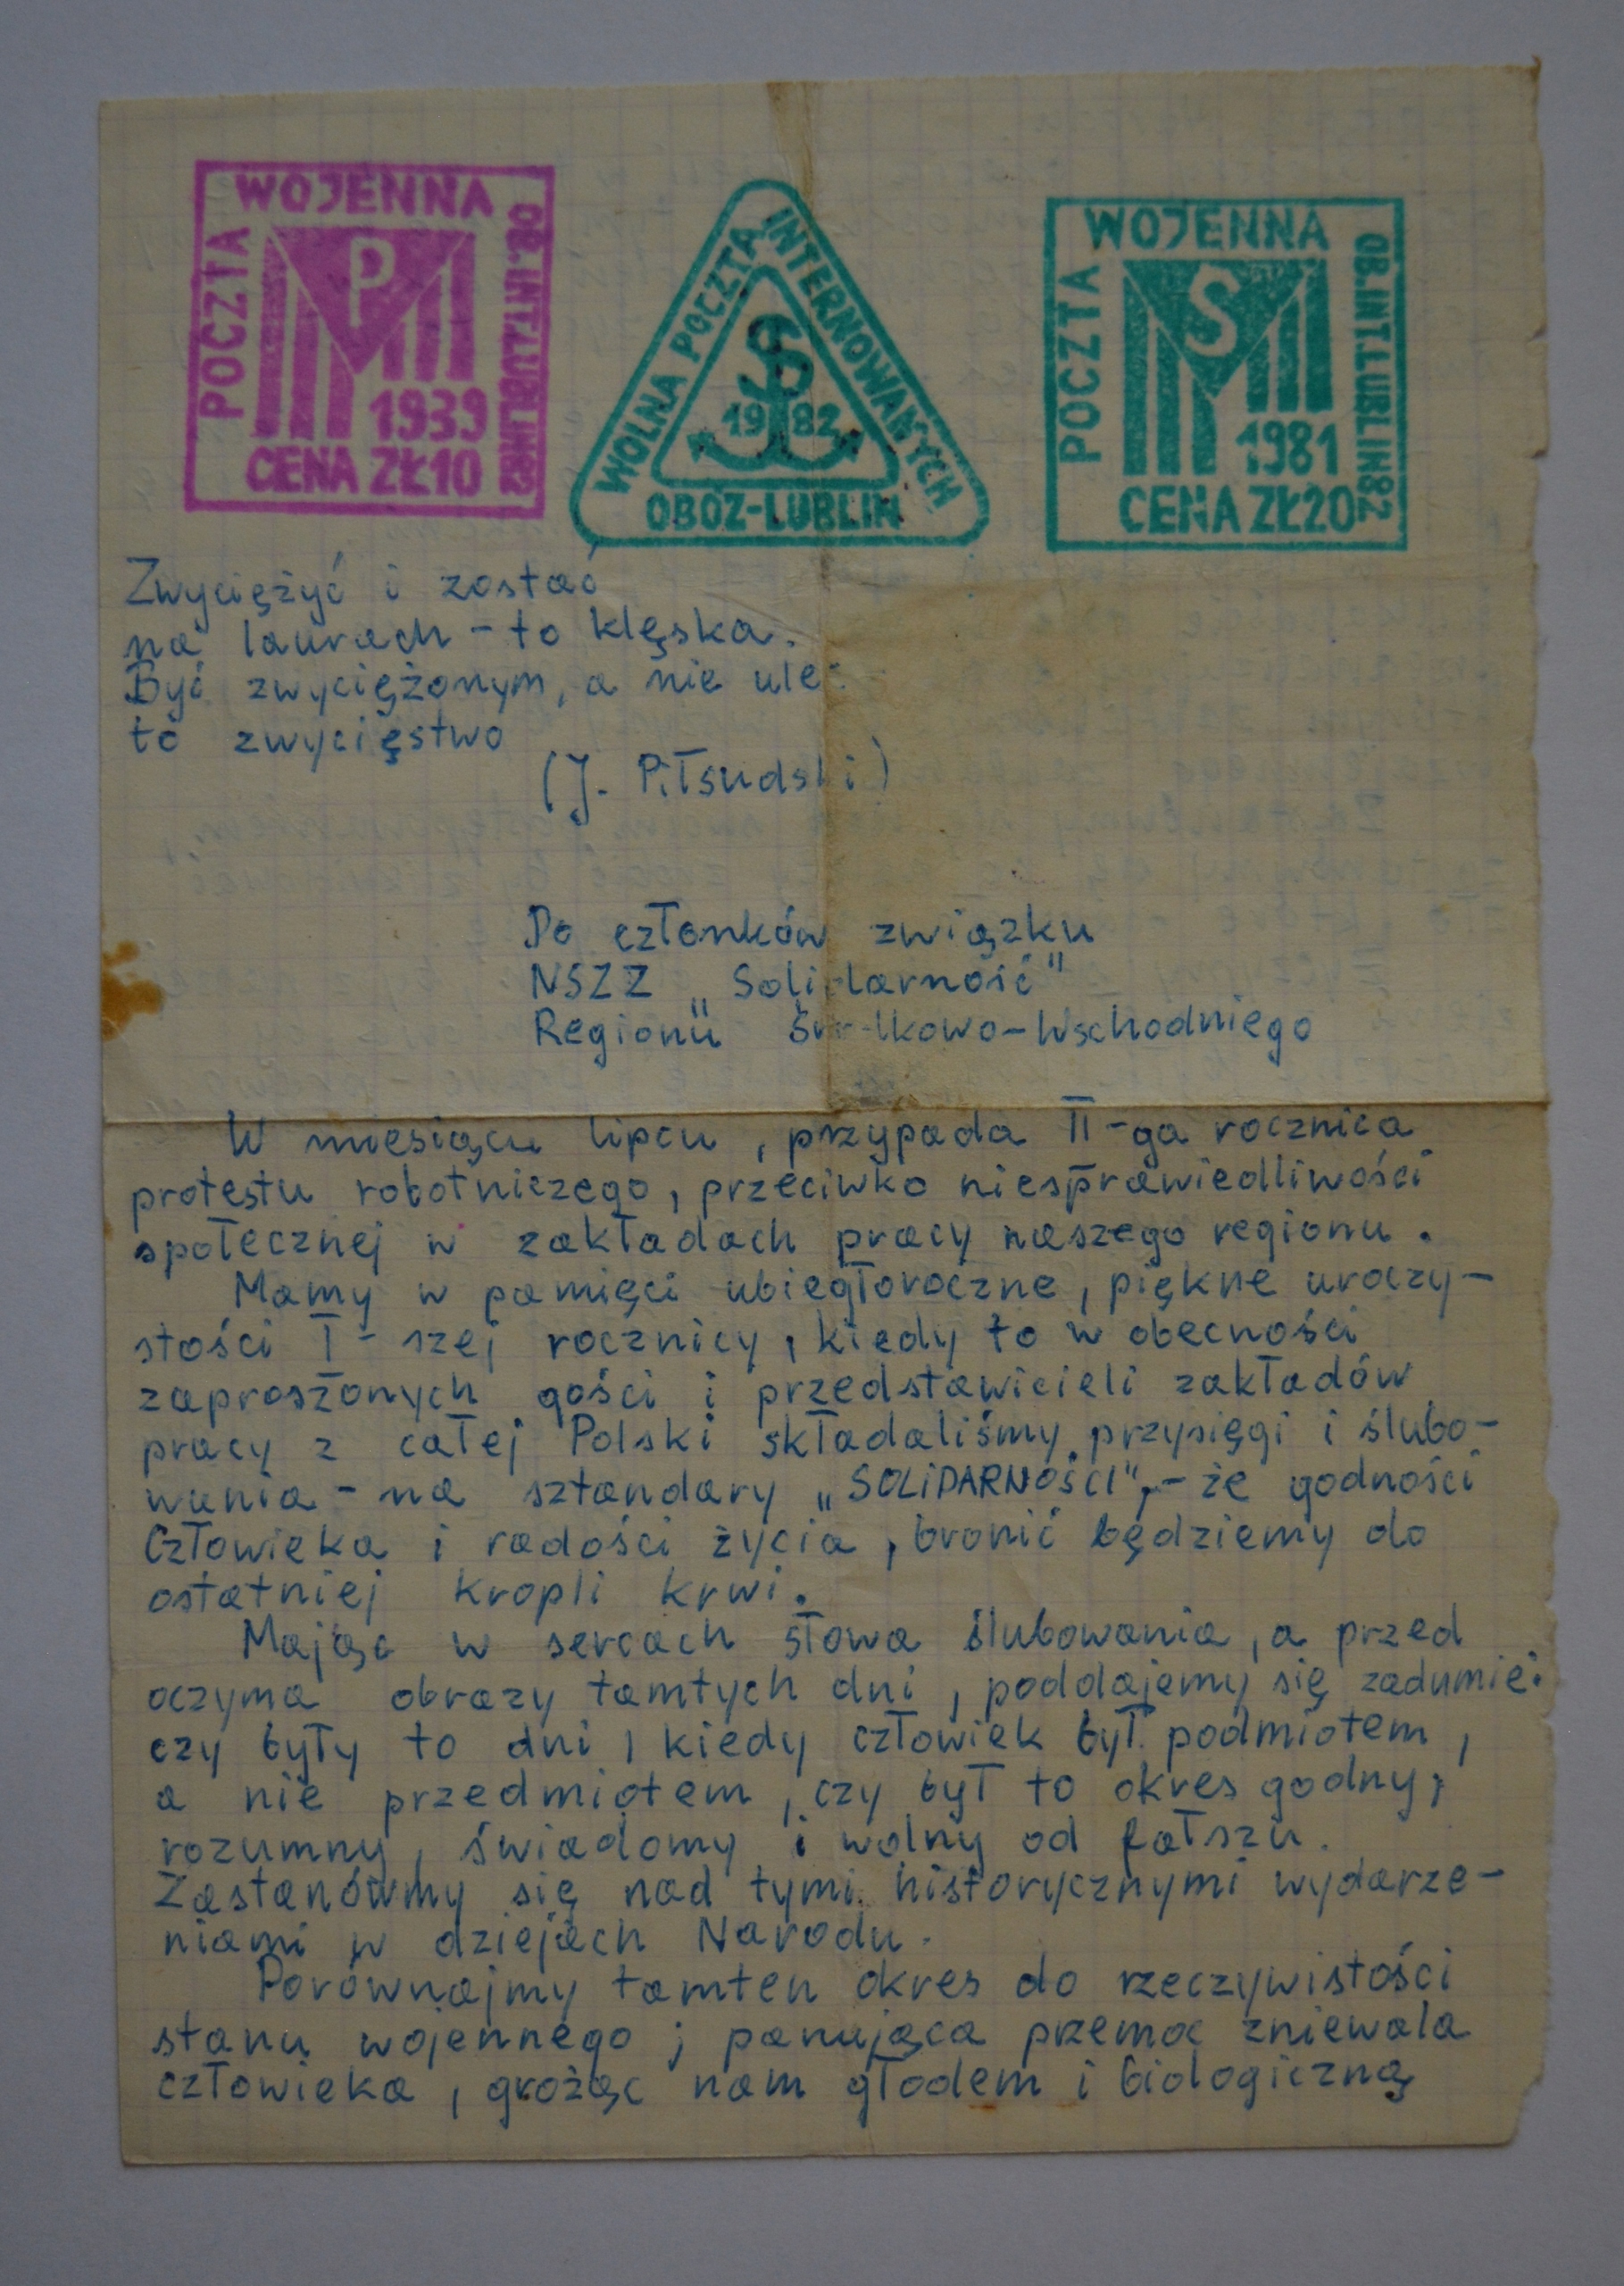 WOJENNA
POCZTA
OB.INT.LUBLIN82
P
1939
CENA ZŁ10
WOLNA POCZTA INTERNOWANYCH
S
1982
OBOZ-LUBLIN
WOJENNA
POCZTA
OB.INT.LUBLIN82
S
1981
CENA ZŁ20
Zwyciężyć i zostać
na laurach - to klęska.
Być zwyciężonym, a nie
to zwycięstwo
(J. Piłsudski)
Do członków związku
NSZZ „Solidarność"
Regionu Środkowo-Wschodniego
W miesiącu lipcu, przypada II-ga rocznica
protestu robotniczego, przeciwko niesprawiedliwości
społecznej w zakładach pracy naszego regionu.
Mamy w pamięci ubiegłoroczne, piękne uroczy-
stości I-szej rocznicy, kiedy to w obecności
zaproszonych gości i przedstawicieli zakładów
pracy z całej Polski składaliśmy przysięgi i ślubo-
wania - na sztandary „SOLIDARNOŚCI", - że godności
Człowieka i radości życia, bronić będziemy do
ostatniej kropli krwi.
Mając w sercach słowa ślubowania, a przed
oczyma obrazy tamtych dni, poddajemy się zadumie:
czy były to dni, kiedy człowiek był podmiotem,
a nie przedmiotem, czy był to okres godny,
rozumny, świadomy i wolny od fałszu.
Zastanówmy się nad tymi historycznymi wydarze-
niami w dziejach Narodu.
Porównajmy tamten okres do rzeczywistości
stanu wojennego; panująca przemoc zniewala
człowieka, grożąc nam głodem i biologiczną